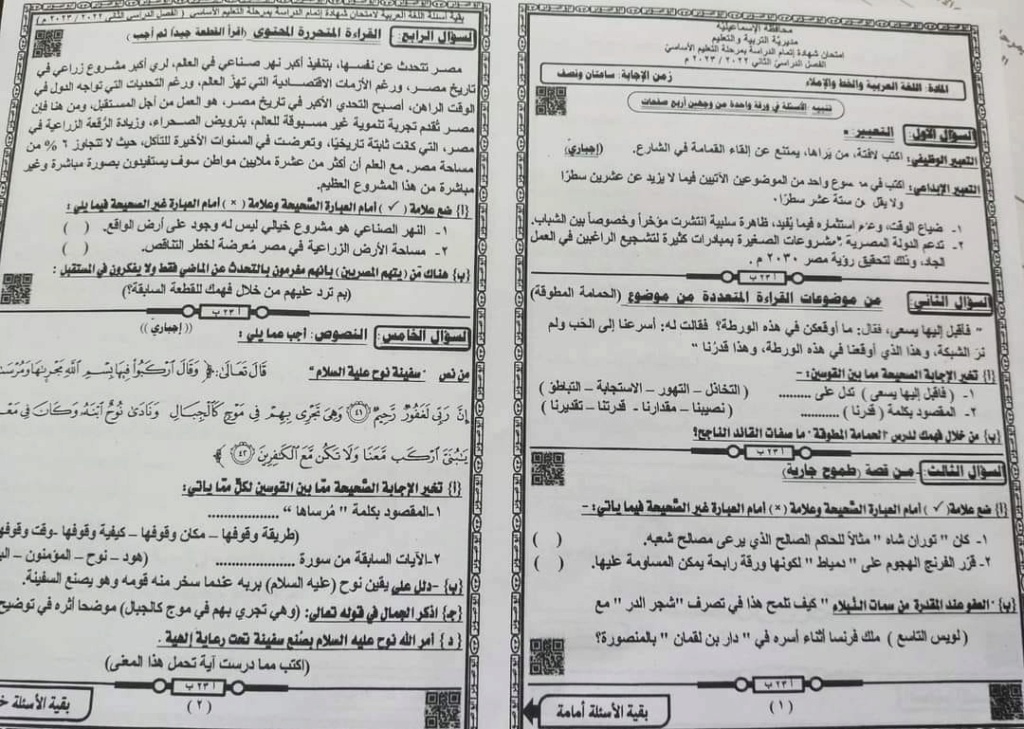 محافظة الإسماعيلية
مديرية التربية والتعليم
امتحان شهادة إتمام الدراسة بمرحلة التعليم الأساسي
الفصل الدراسي الثاني ٢٠٢٢ / ٢٠٢٣ م
المادة: اللغة العربية والخط والإملاء
زمن الإجابة: ساعتان ونصف
تنبيه: الأسئلة في ورقة واحدة من وجهين أربع صفحات
السؤال الأول: التعبير:
التعبير الوظيفي: اكتب لافتة، من يراها، يمتنع عن إلقاء القمامة في الشارع. (إجباري)
التعبير الإبداعي: اكتب في موضوع واحد من الموضوعين الآتيين فيما لا يزيد عن عشرين سطرًا
ولا يقل عن ستة عشر سطرًا:
١- ضياع الوقت، وعدم استثماره فيما يُفيد، ظاهرة سلبية انتشرت مؤخرًا وخصوصًا بين الشباب.
٢- تدعم الدولة المصرية المشروعات الصغيرة بمبادرات كثيرة لتشجيع الراغبين في العمل
الجاد، وذلك لتحقيق رؤية مصر ٢٠٣٠ م.
أ ٢٣ ب
السؤال الثاني: من موضوعات القراءة المتعددة من موضوع (الحمامة المطوقة)
" فأقبل إليها يسعى، فقال: ما أوقعكن في هذه الورطة؟ فقالت له: أسرعنا إلى الحَب ولم
نرَ الشبكة، وهذا الذي أوقعنا في هذه الورطة، وهذا قدرنا "
(أ) تخير الإجابة الصحيحة مما بين القوسين: -
١- ( فأقبل إليها يسعى ) تدل على ......... ( التخاذل – التهور – الاستجابة – التباطؤ )
٢- المقصود بكلمة ( قدرنا ) ........... ( نصيبنا – مقدارنا - قدرتنا – تقديرنا )
(ب) من خلال فهمك لدرس "الحمامة المطوقة" ما صفات القائد الناجح؟
أ ٢٣ ب
السؤال الثالث: من قصة (طموح جارية)
(أ) ضع علامة (✓) أمام العبارة الصَّحيحة وعلامة (×) أمام العبارة غير الصَّحيحة فيما يأتي: -
١- كان " توران شاه " مثالاً للحاكم الصالح الذي يرعى مصالح شعبه. ( )
٢- قرّر الفرنج الهجوم على " دمياط " لكونها ورقة رابحة يمكن المساومة عليها. ( )
(ب) "العفو عند المقدرة من سمات النبلاء " كيف تلمح هذا في تصرف "شجر الدر " مع
( لويس التاسع ) ملك فرنسا أثناء أسره في " دار بن لقمان " بالمنصورة؟
أ ٢٣ ب
(١)
بقية الأسئلة أمامة
بقية أسئلة اللغة العربية لامتحان شهادة إتمام الدراسة بمرحلة التعليم الأساسي ( الفصل الدراسي الثاني ٢٠٢٢ / ٢٠٢٣ م )
السؤال الرابع: القراءة المتحررة المحتوى (اقرأ القطعة جيداً ثم أجب)
مصر تتحدث عن نفسها، بتنفيذ أكبر نهر صناعي في العالم، لري أكبر مشروع زراعي في
تاريخ مصر، ورغم الأزمات الاقتصادية التي تهزّ العالم، ورغم التحديات التي تواجه الدول في
الوقت الراهن، أصبح التحدي الأكبر في تاريخ مصر، هو العمل من أجل المستقبل، ومن هنا فإن
مصر تُقدم تجربة تنموية غير مسبوقة للعالم، بترويض الصحراء، وزيادة الرُقعة الزراعية في
مصر، التي كانت ثابتة تاريخيًا، وتعرضت في السنوات الأخيرة للتآكل، حيث لا تتجاوز ٦ % من
مساحة مصر، مع العلم أن أكثر من عشرة ملايين مواطن سوف يستفيدون بصورة مباشرة وغير
مباشرة من هذا المشروع العظيم.
(أ) ضع علامة (✓) أمام العبارة الصَّحيحة وعلامة (×) أمام العبارة غير الصحيحة فيما يلي:
١- النهر الصناعي هو مشروع خيالي ليس له وجود على أرض الواقع. ( )
٢- مساحة الأرض الزراعية في مصر مُعرضة لخطر التناقص. ( )
(ب) هناك مَن (يتهم المصريين) بأنهم مغرمون بالتحدث عن الماضي فقط ولا يفكرون في المستقبل:
(بم ترد عليهم من خلال فهمك للقطعة السابقة؟)
أ ٢٣ ب
السؤال الخامس: النصوص: أجب عما يلي: ((إجباري))
من نص "سفينة نوح علية السلام" قَالَ تَعَالَى: ﴿ وَقَالَ ارْكَبُوا فِيهَا بِسْمِ اللَّهِ مَجْرَىٰهَا وَمُرْسَىٰهَا
إِنَّ رَبِّي لَغَفُورٌ رَّحِيمٌ ﴿٤١﴾ وَهِيَ تَجْرِي بِهِمْ فِي مَوْجٍ كَالْجِبَالِ وَنَادَىٰ نُوحٌ ابْنَهُ وَكَانَ فِي
يَٰبُنَيَّ ارْكَب مَّعَنَا وَلَا تَكُن مَّعَ الْكَٰفِرِينَ ﴿٤٢﴾ ﴾
(أ) تخير الإجابة الصَّحيحة ممّا بين القوسين لكلٍّ ممّا يأتي:
١-المقصود بكلمة " مُرساها " ................
(طريقة وقوفها – مكان وقوفها – كيفية وقوفها -وقت وقوفها
٢-الآيات السابقة من سورة ................ (هود – نوح – المؤمنون –
(ب) –دلل على يقين نوح (عليه السلام) بربه عندما سخر منه قومه وهو يصنع السفينة.
(جـ) اذكر الجمال في قوله تعالى: (وهي تجري بهم في موج كالجبال) موضحا أثره في توضيح
(د) أمر الله نوح عليه السلام بصُنع سفينة تحت رعاية إلهية .
(اكتب مما درست آية تحمل هذا المعنى)
أ ٢٣ ب
(٢)
بقية الأسئلة